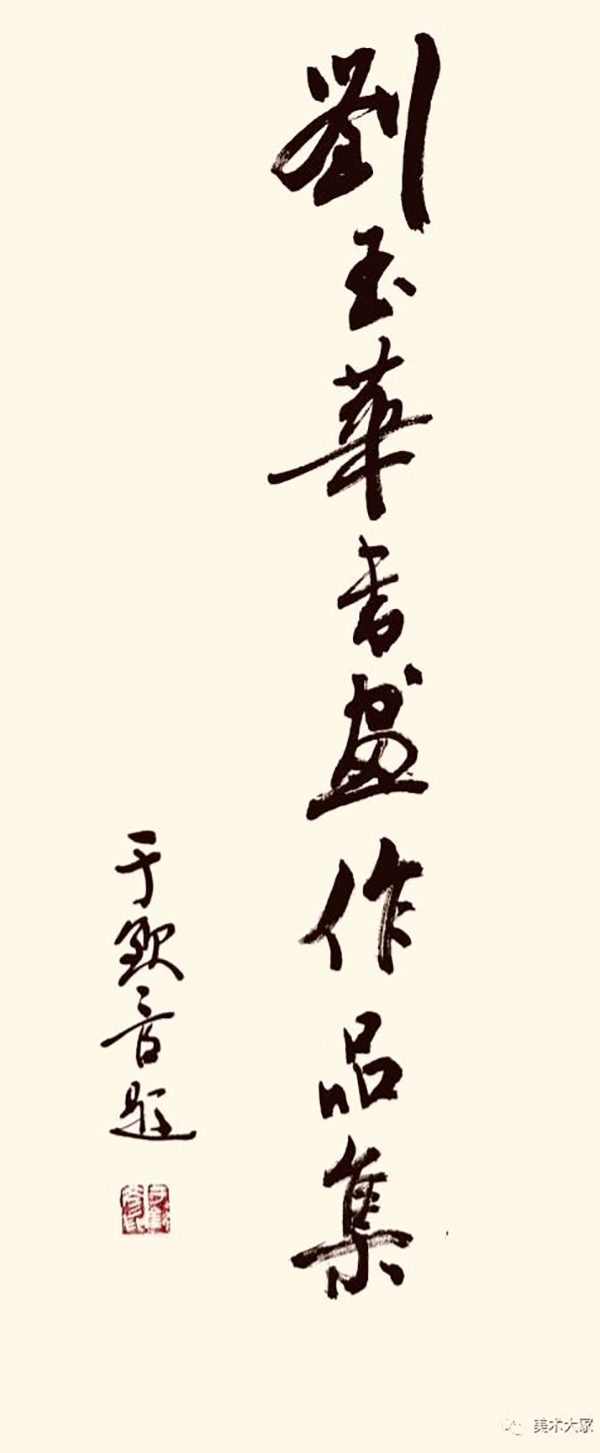 劉玉華書畫作品集
于歐音題
美术大家